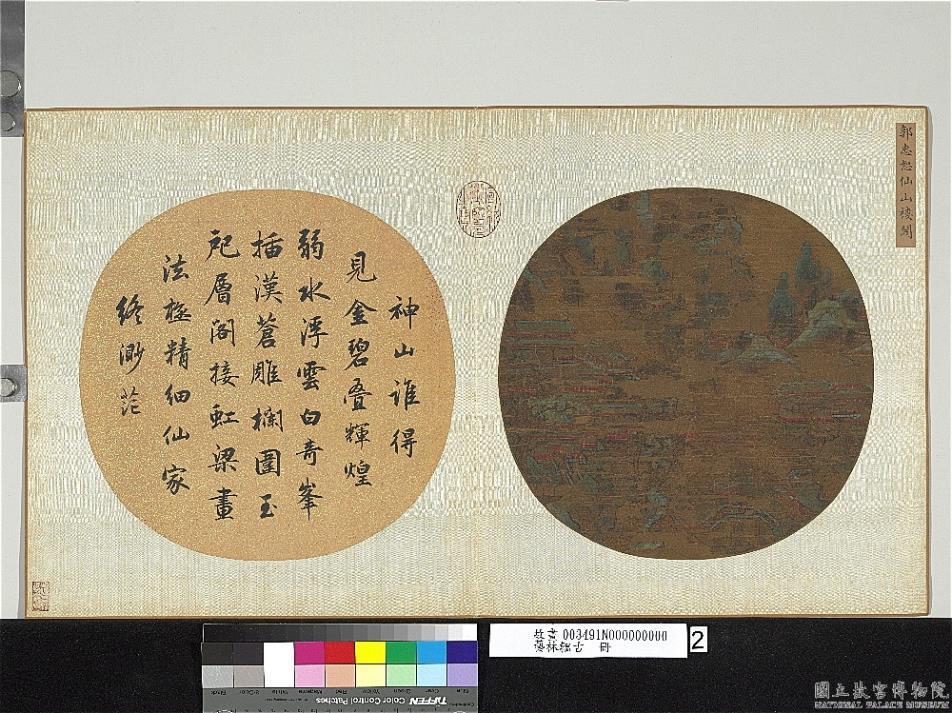 郭忠恕仙山樓閣
神山誰得
見金碧叠輝煌
弱水浮雲白奇峯
插漢蒼雕欄圍玉
戺層閣接虹梁畫
法極精細仙家
終渺茫
故畫 003491N000000000
藝林韞古 冊
2
TIFFEN Color Control Patches
國立故宮博物院
NATIONAL PALACE MUSEUM